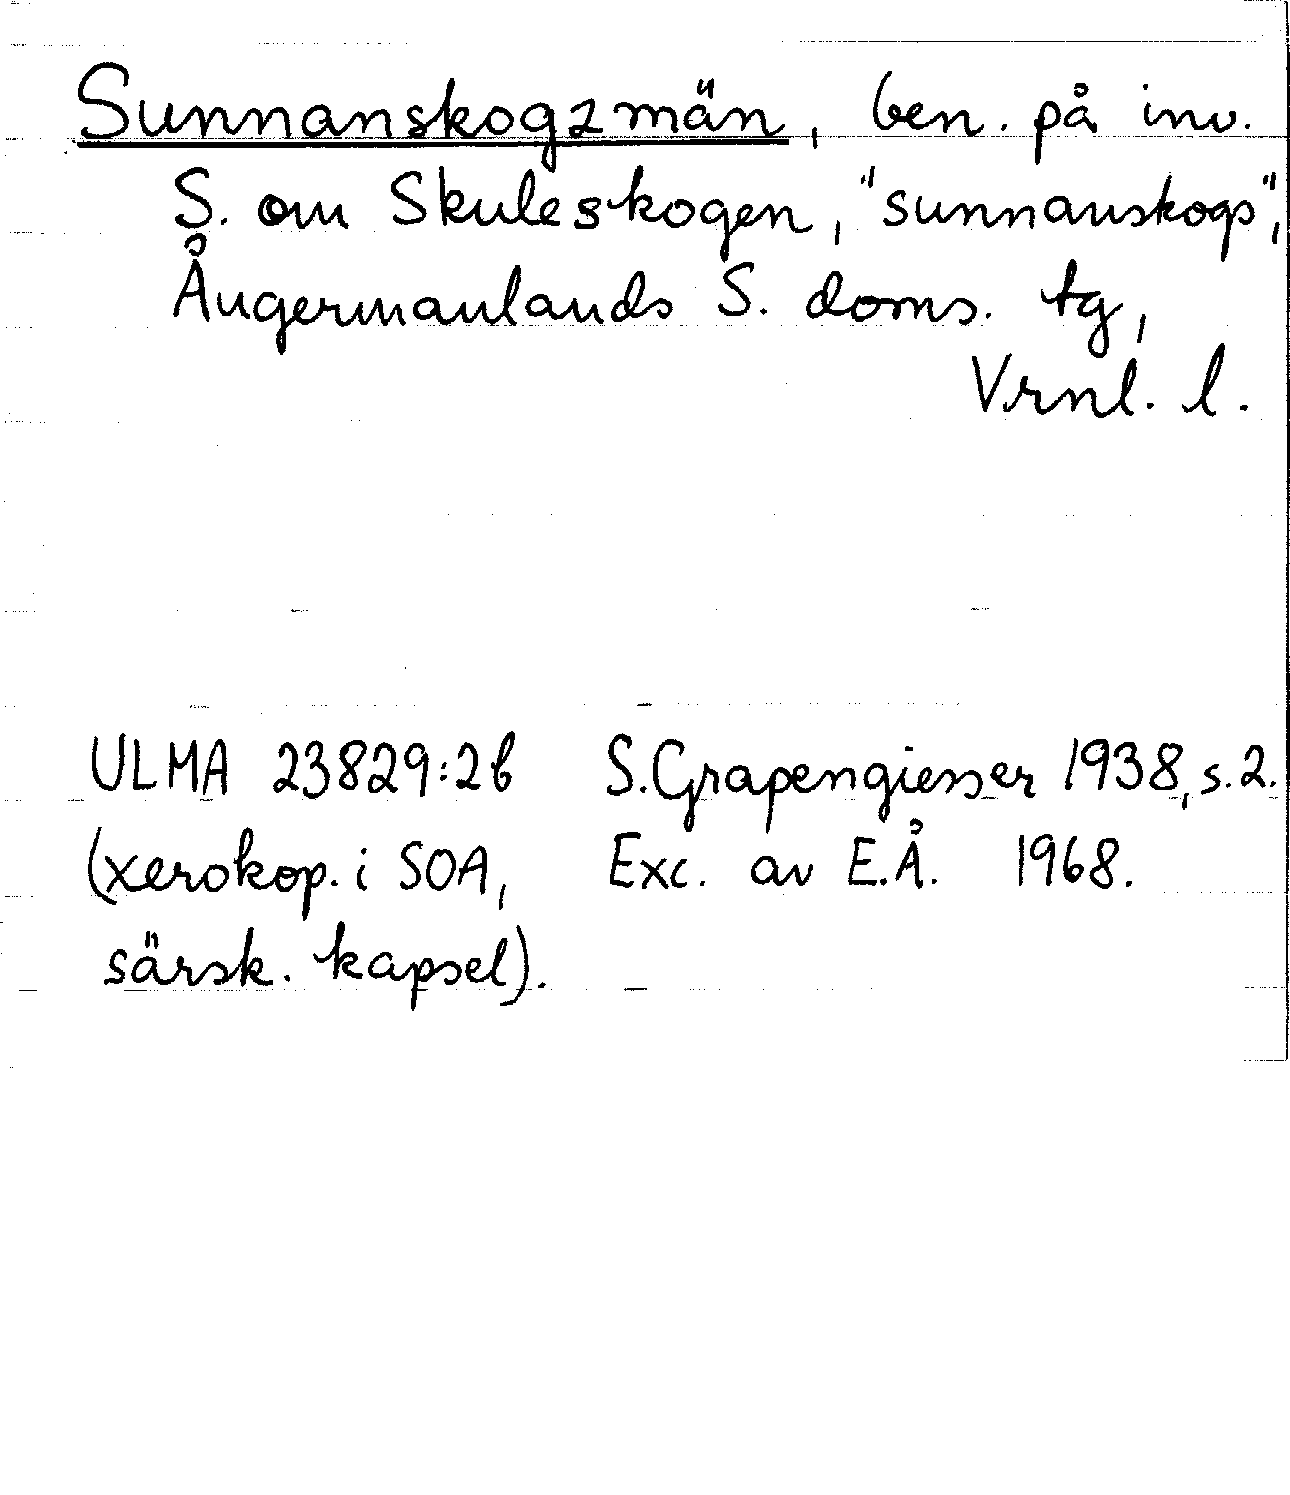 Sunnanskogzmän, ben. på inv.
S. om Skuleskogen, "sunnanskogs",
Ångermanlands S. doms. tg,
Vrnl. l.
ULMA 23829:2b S.Grapengiesser 1938, s.2.
(xerokop. i SOA, Exc. av E.Å. 1968.
särsk. kapsel).